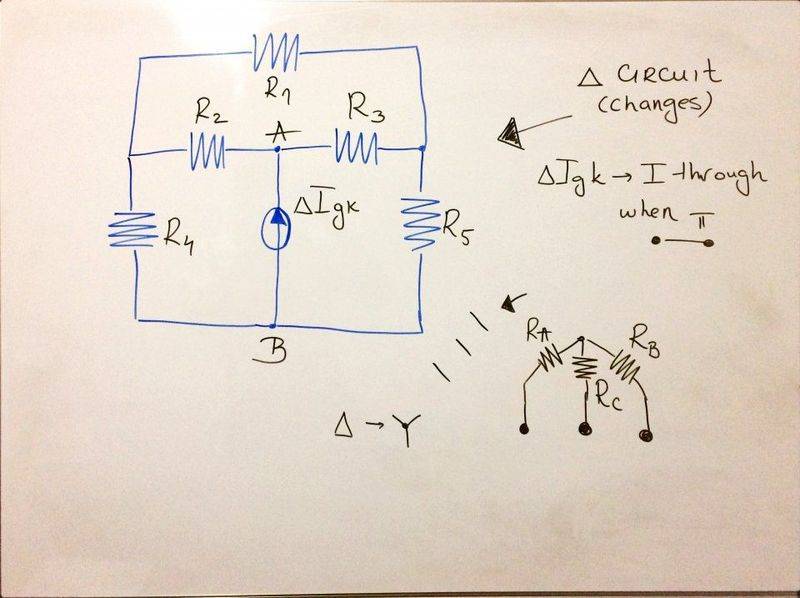 R1
R2
A
R3
ΔIgk
R4
R5
B
Δ CIRCUIT
(changes)
ΔIgk → I through
when π
RA
RB
RC
Δ → Y